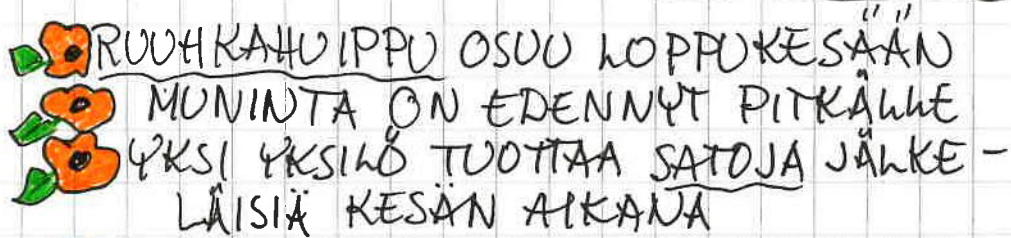 RUUHKAHUIPPU OSUU LOPPUKESÄÄN
MUNINTA ON EDENNYT PITKÄLLE
YKSI YKSILÖ TUOTTAA SATOJA JÄLKE-
LÄISIÄ KESÄN AIKANA